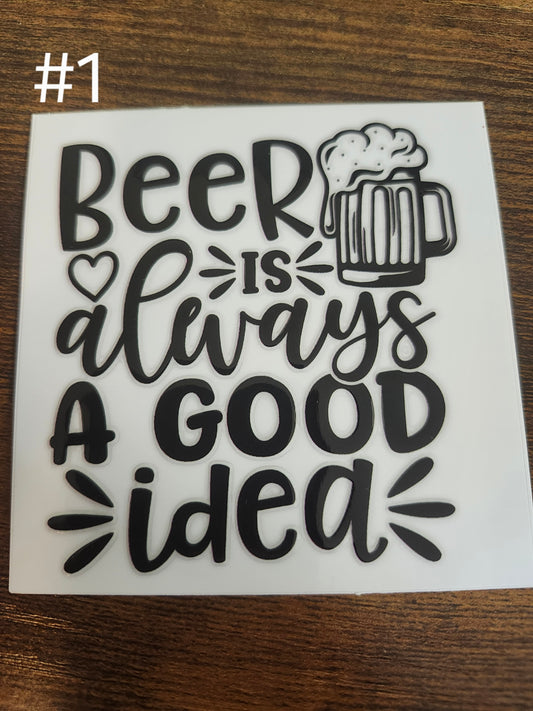 #1
BeeR
IS
always
A GOOD
idea